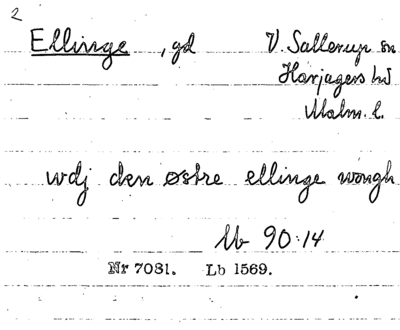 2
Ellinge, gd V. Sallerup sn
Harjagers hd
Malm. l.
wdj den østre ellinge wongh
Lb 90:14
Nr 7081. Lb 1569.